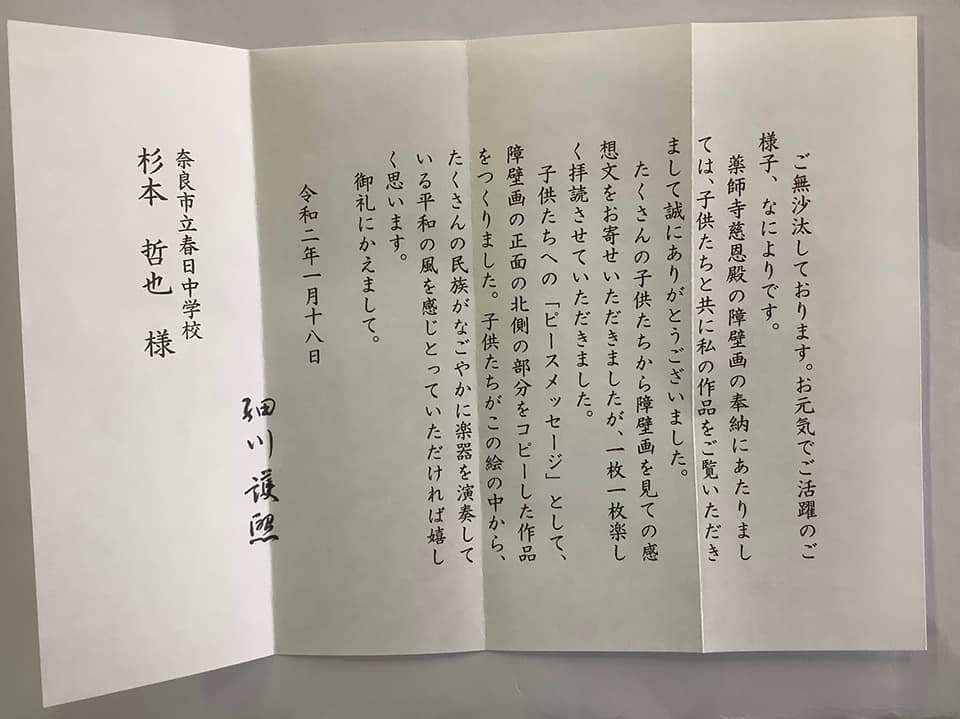 ご無沙汰しております。お元気でご活躍のご
様子、なによりです。
薬師寺慈恩殿の障壁画の奉納にあたりまし
ては、子供たちと共に私の作品をご覧いただき
まして誠にありがとうございました。
たくさんの子供たちから障壁画を見ての感
想文をお寄せいただきましたが、一枚一枚楽し
く拝読させていただきました。
子供たちへの「ピースメッセージ」として、
障壁画の正面の北側の部分をコピーした作品
をつくりました。子供たちがこの絵の中から、
たくさんの民族がなごやかに楽器を演奏して
いる平和の風を感じとっていただければ嬉し
く思います。
御礼にかえまして。
令和二年一月十八日
細川護熙
奈良市立春日中学校
杉本 哲也 様